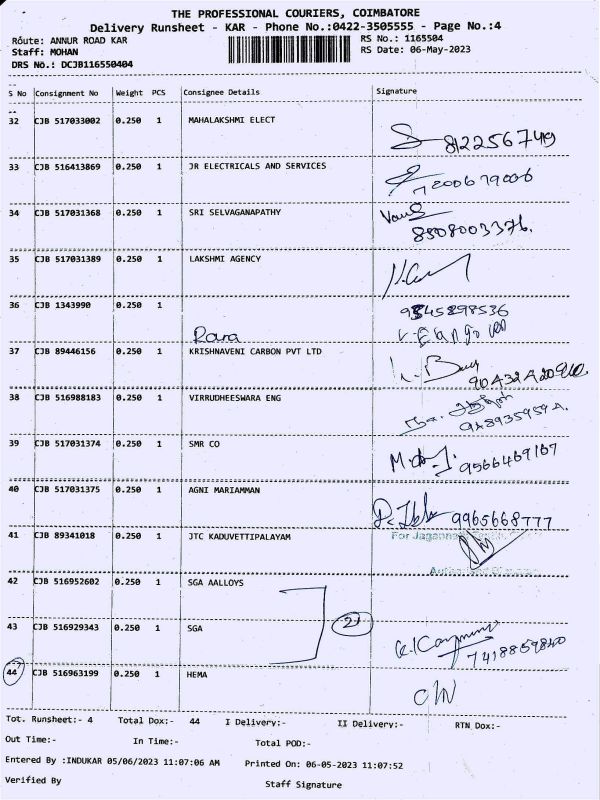 THE PROFESSIONAL COURIERS, COIMBATORE
Delivery Runsheet - KAR - Phone No.:0422-3505555 - Page No.:4
Route: ANNUR ROAD KAR RS No.: 1165504
Staff: MOHAN RS Date: 06-May-2023
DRS No.: DCJB116550404
S No Consignment No Weight PCS Consignee Details Signature
32 CJB 517033002 0.250 1 MAHALAKSHMI ELECT
812256749
33 CJB 516413869 0.250 1 JR ELECTRICALS AND SERVICES
7200679006
34 CJB 517031368 0.250 1 SRI SELVAGANAPATHY
8508003376.
35 CJB 517031389 0.250 1 LAKSHMI AGENCY
36 CJB 1343990 0.250 1
9345898536
Rana
37 CJB 89446156 0.250 1 KRISHNAVENI CARBON PVT LTD
38 CJB 516988183 0.250 1 VIRRUDHEESWARA ENG
39 CJB 517031374 0.250 1 SMR CO
9566469167
40 CJB 517031375 0.250 1 AGNI MARIAMMAN
9965668777
41 CJB 89341018 0.250 1 JTC KADUVETTIPALAYAM
For
42 CJB 516952602 0.250 1 SGA AALLOYS
2
43 CJB 516929343 0.250 1 SGA
7418859840
44 CJB 516963199 0.250 1 HEMA
Tot. Runsheet:- 4 Total Dox:- 44 I Delivery:- II Delivery:- RTN Dox:-
Out Time:- In Time:- Total POD:-
Entered By :INDUKAR 05/06/2023 11:07:06 AM Printed On: 06-05-2023 11:07:52
Verified By Staff Signature